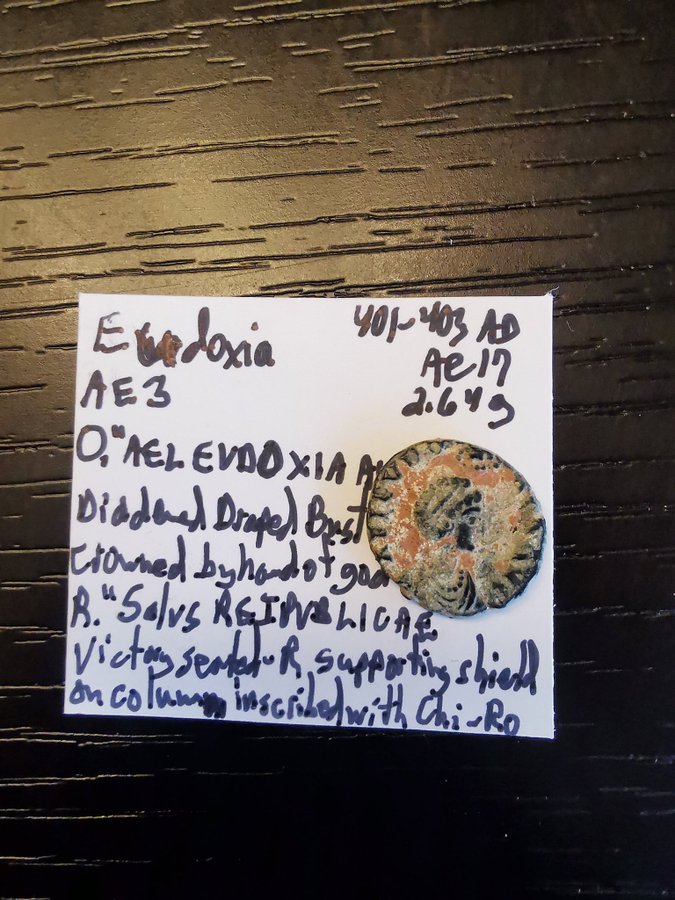 Eudoxia 401-403 AD
AE3 Ae17
2.64g
O."AEL EVDOXIA A
Diademed Draped Bust
Crowned by hand of god
R."Salvs REIPVBLICAE
Victory seated R supporting shield
on column inscribed with Chi-Ro